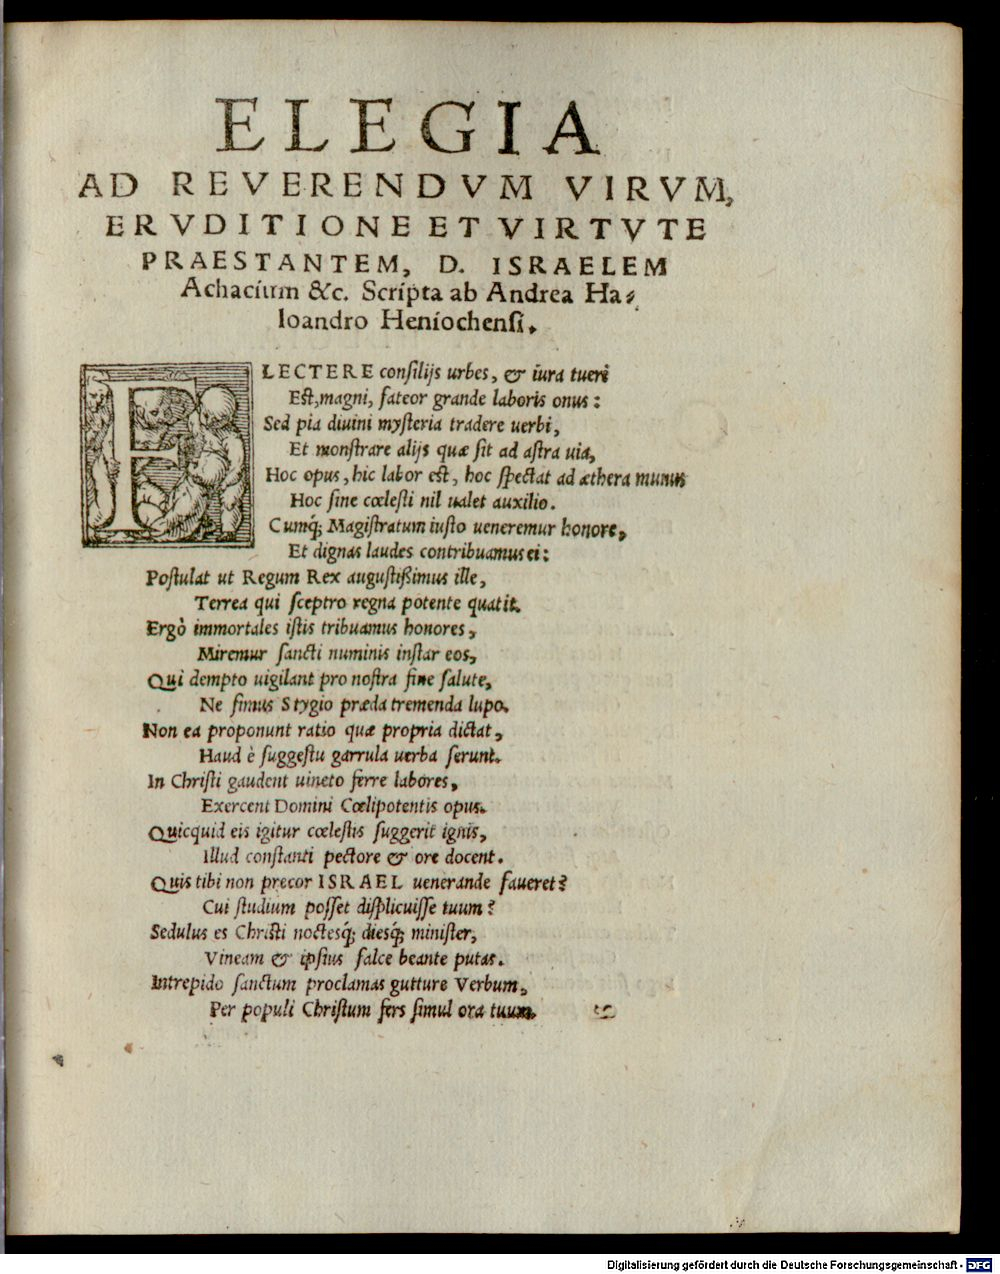 ELEGIA
AD REVERENDVM VIRVM,
ERVDITIONE ET VIRTVTE
PRAESTANTEM, D. ISRAELEM
Achacium &c. Scripta ab Andrea Ha⸗
loandro Heniochensi.
FLECTERE consilijs urbes, & iura tueri
Est, magni, fateor grande laboris onus:
Sed pia diuini mysteria tradere uerbi,
Et monstrare alijs quæ sit ad astra uia,
Hoc opus, hic labor est, hoc spectat ad æthera munus
Hoc sine cœlesti nil ualet auxilio.
Cumq́; Magistratum iusto ueneremur honore,
Et dignas laudes contribuamus ei:
Postulat ut Regum Rex augustißimus ille,
Terrea qui sceptro regna potente quatit.
Ergò immortales istis tribuamus honores,
Miremur sancti numinis instar eos,
Qui dempto uigilant pro nostra fine salute,
Ne simus Stygio præda tremenda lupo.
Non ea proponunt ratio quæ propria dictat,
Haud è suggestu garrula uerba serunt.
In Christi gaudent uineto ferre labores,
Exercent Domini Cœlipotentis opus.
Quicquid eis igitur cœlestis suggerit ignis,
Illud constanti pectore & ore docent.
Quis tibi non precor ISRAEL uenerande faueret?
Cui studium posset displicuisse tuum?
Sedulus es Christi noctesq́; diesq́; minister,
Vineam & ipsius falce beante putas.
Intrepido sanctum proclamas gutture Verbum,
Per populi Christum fers simul ora tuum.
Digitalisierung gefördert durch die Deutsche Forschungsgemeinschaft - DFG